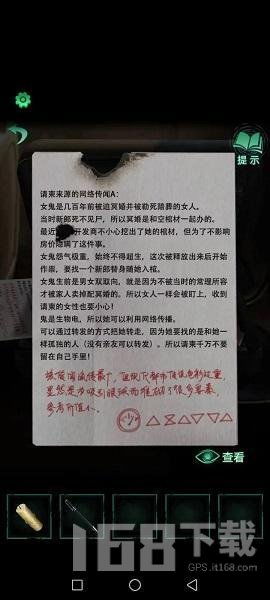 提示
请柬来源的网络传闻A：
女鬼是几百年前被迫冥婚并被勒死陪葬的女人。
当时新郎死不见尸，所以冥婚是和空棺材一起办的。
最近 开发商不小心挖出了她的棺材，但为了不影响
房价隐瞒了这件事。
女鬼怨气极重，始终不得超生，这次被释放出来后开始
作祟，要找一个新郎替身随她入棺。
女鬼生前是男女双取向，就是因为不被当时的常理所容
才被家人卖掉配冥婚的。所以女人一样会被盯上，收到
请柬的女性也要小心！
女鬼是生物电，所以她可以利用网络传播。
可以通过转发的方式把她转走，因为她要找的是和她一
样孤独的人（没有亲友可以转发）。所以请柬千万不要
留在自己手里！
该传闻流传最广，
显然是为吸引眼球而
参考价值低。
查看
168下载
GPS.it168.com